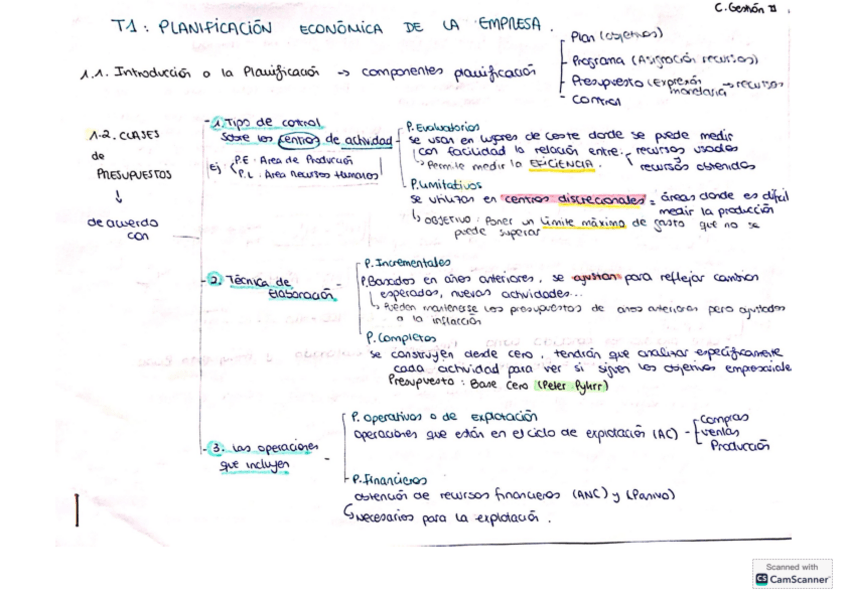 C. Gestión II
T1: PLANIFICACIÓN ECONÓMICA DE LA EMPRESA.
1.1. Introducción a la Planificación → componentes planificación
Plan (objetivos)
Programa (Asignación recursos)
Presupuesto (Expresión monetaria → recursos
Control
1.2. CLASES de PRESUPUESTOS
↓
de acuerdo con
1. Tipo de control
Sobre los centros de actividad
Ej P.E: Area de Producción
P.L: Area Recursos Humanos
P. Evaluatorios
se usan en lugares de coste donde se puede medir
con facilidad la relación entre: recursos usados y recursos obtenidos
↳ Permite medir la EFICIENCIA.
P. Limitativos
se utilizan en centros discrecionales = áreas donde es difícil
medir la producción
↳ OBJETIVO: Poner un límite máximo de gasto que no se
puede superar
2. Técnica de Elaboración
P. Incrementales
P. Basados en años anteriores, se ajustan para reflejar cambios
esperados, nuevas actividades...
↳ Pueden mantenerse los presupuestos de años anteriores pero ajustados
a la inflacción
P. Completos
se construyen desde cero, tendrán que analizar específicamente
cada actividad para ver si siguen los objetivos empresariale
Presupuesto: Base Cero (Peter Pyhrr)
3. Las operaciones que incluyen
P. Operativos o de explotación
operaciones que están en el ciclo de explotación (AC)
Compras
Ventas
Producción
P. Financieros
obtención de recursos financieros (ANC) y (Pasivo)
↳ Necesarios para la explotación.
Scanned with
CS CamScanner